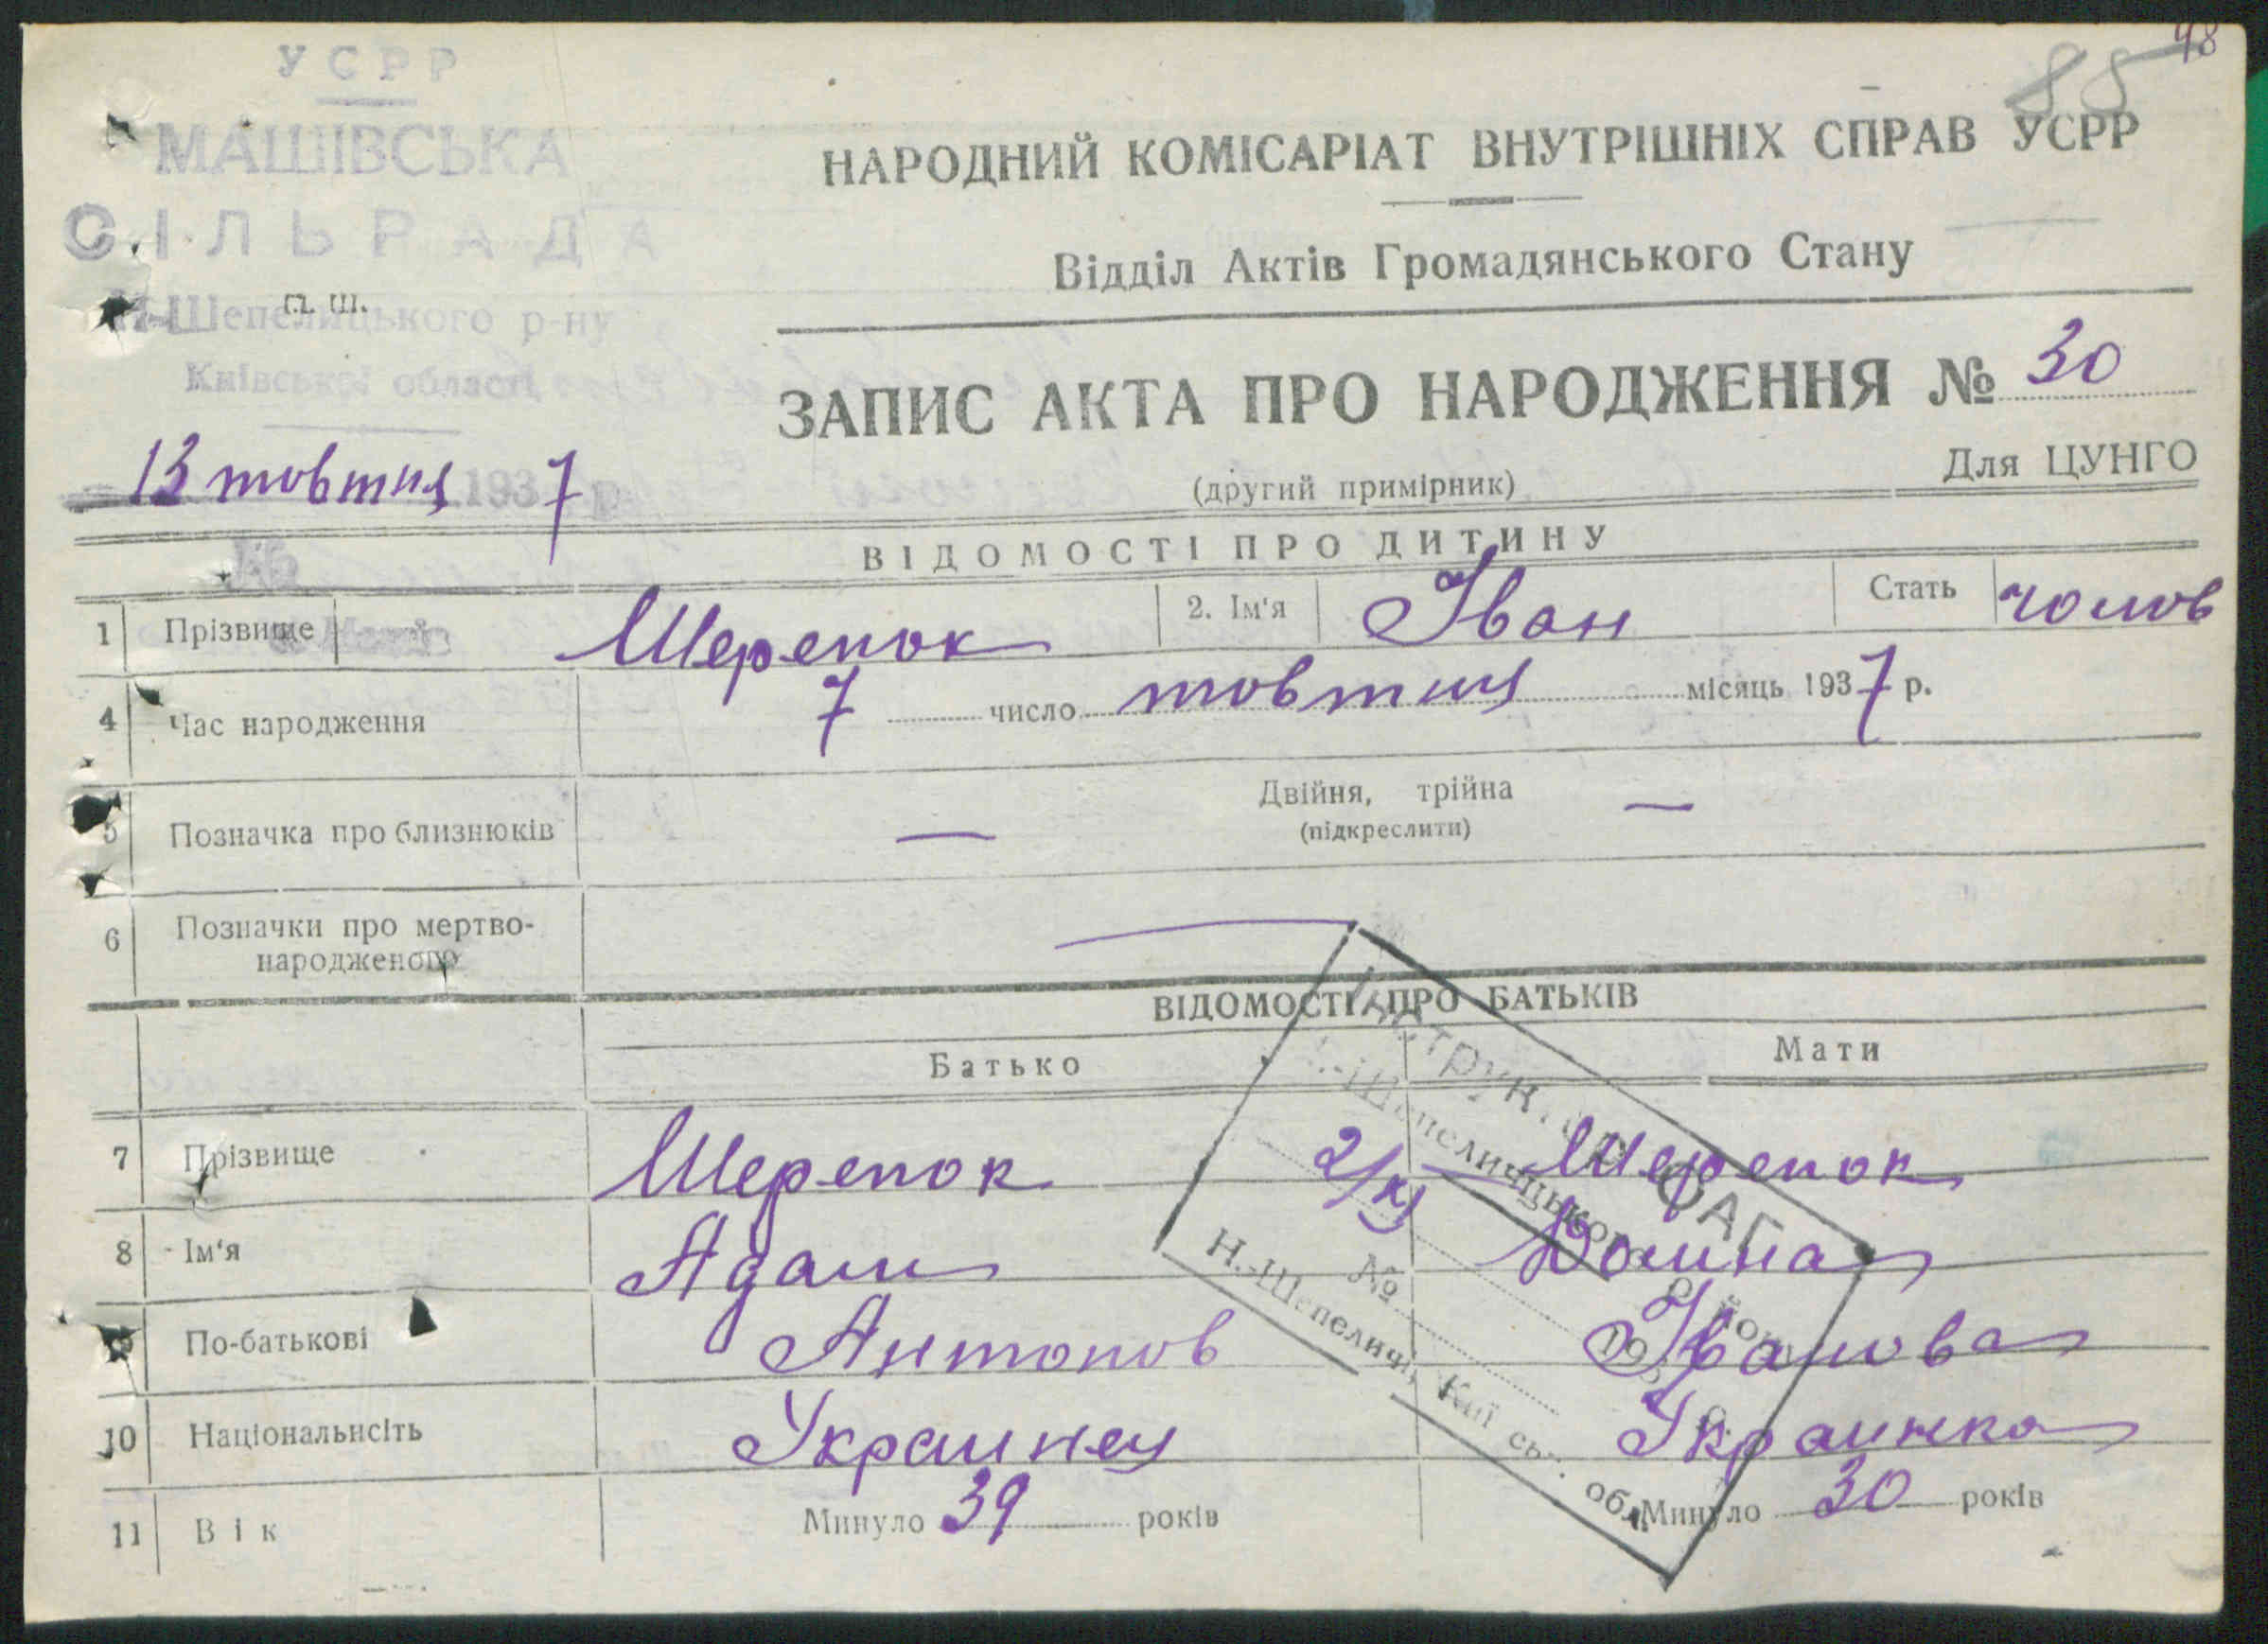 98
85
УСРР
МАШІВСЬКА
СІЛЬРАДА
П. Ш.
Н-Шепелицького р-ну
Київської області
НАРОДНИЙ КОМІСАРІАТ ВНУТРІШНІХ СПРАВ УСРР
Відділ Актів Громадянського Стану
ЗАПИС АКТА ПРО НАРОДЖЕННЯ № 30
(другий примірник)
Для ЦУНГО
13 жовтня 1937 р.
ВІДОМОСТІ ПРО ДИТИНУ
1 Прізвище Шерепок 2. Ім'я Іван Стать чолов
4 Час народження 7 число жовтня місяць 1937 р.
5 Позначка про близнюків — Двійня, трійна —
(підкреслити)
6 Позначки про мертво-
народженого
ВІДОМОСТІ ПРО БАТЬКІВ
Батько Мати
7 Прізвище Шерепок Шерепок
8 Ім'я Адам Домна
9 По-батькові Антонов Іванова
10 Національнсіть Украинец Украинка
11 Вік Минуло 39 років Минуло 30 років
№
Н.-Шепеличі, Київськ. обл.